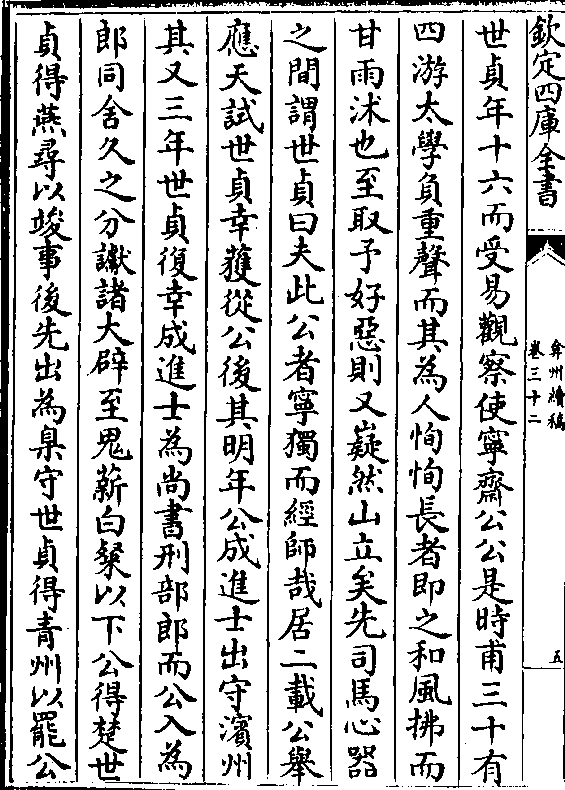 欽定四庫全書
弇州續稿
卷三十二
五
世貞年十六而受易觀察使寧齋公公是時甫三十有
四游太學負重聲而其為人恂恂長者即之和風拂而
甘雨沐也至取予好惡則又嶷然山立矣先司馬心器
之間謂世貞曰夫此公者寧獨而經師哉居二載公舉
應天試世貞幸獲從公後其明年公成進士出守濱州
其又三年世貞復幸成進士為尚書刑部郎而公入為
郎同舍久之分讞諸大辟至鬼薪白粲以下公得楚世
貞得燕尋以竣事後先出為臬守世貞得青州以罷公